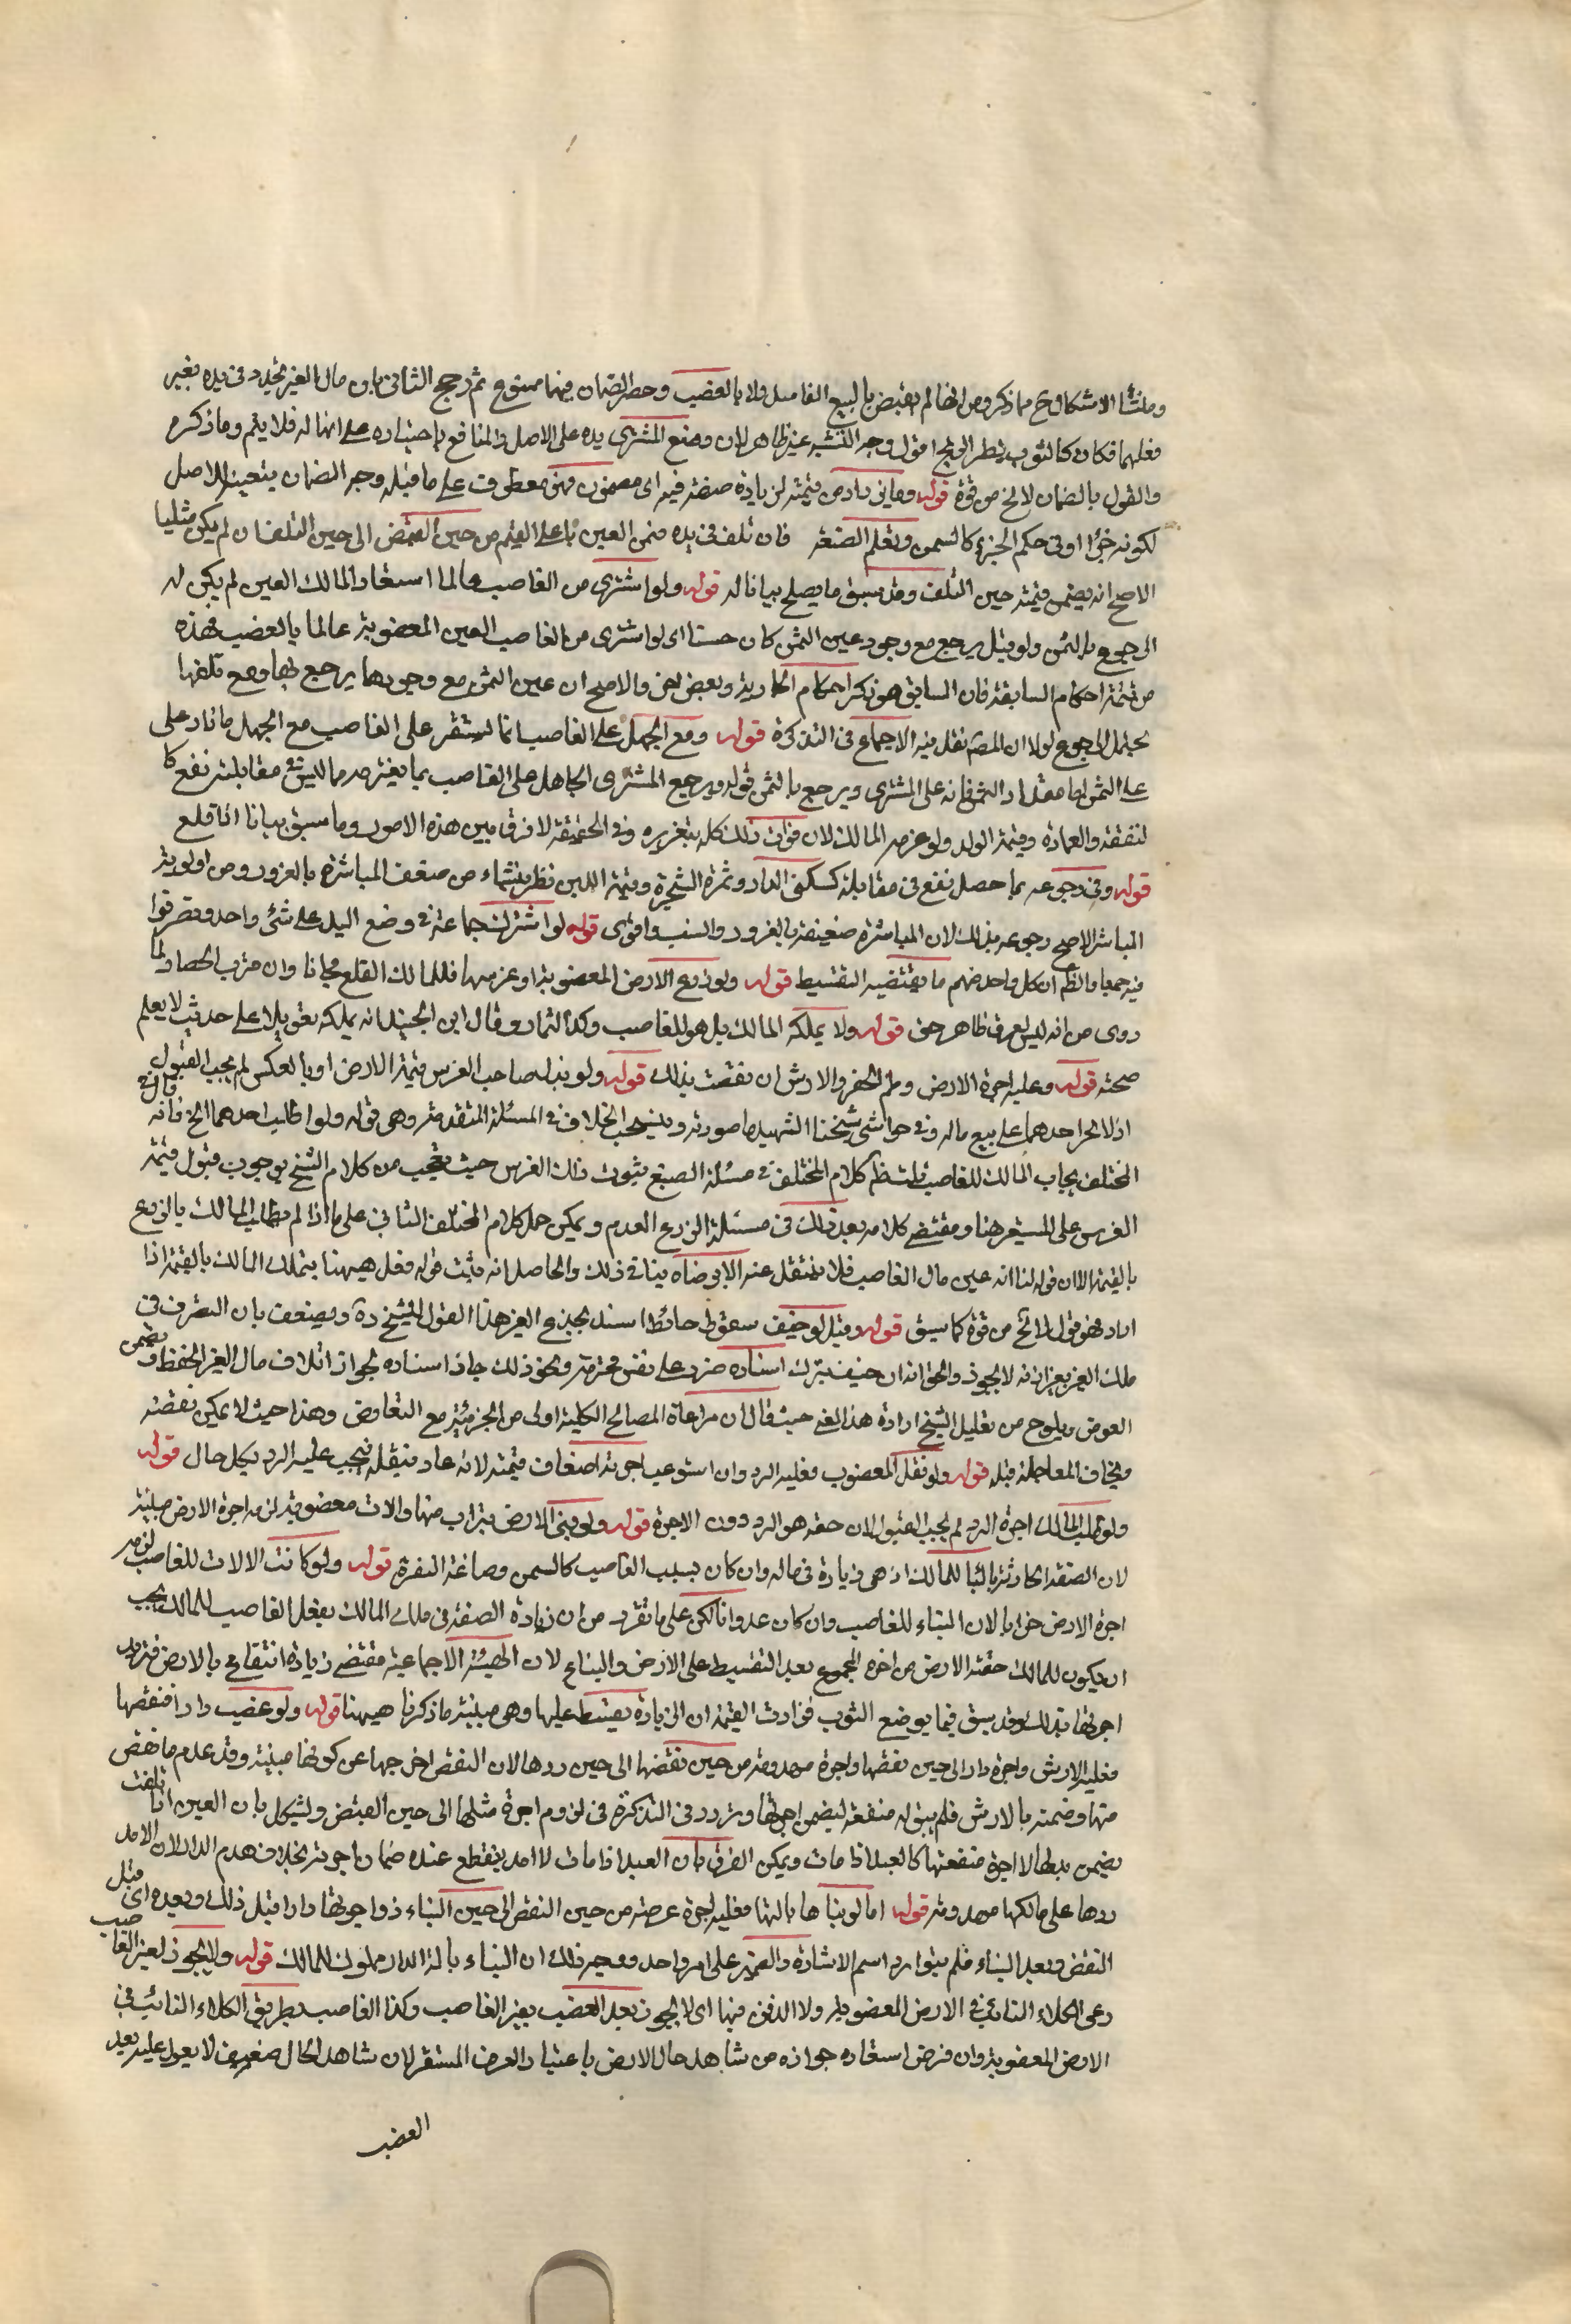 ومنشأ الاشكال ح مما ذكر ومن انها لم تقبض بالبيع الفاسد ولا بالغصب وحصر الضمان فيهما ممنوع ثم رجح الثانى بان مال الغير تجدد فى يده بغير
فعلهما فكان كالثوب يطير الريح اقول وجه التشبيه غير ظاهر لان وضع المشترى يده على الاصل والمنافع باختياره على انها له فلا يتم وما ذكره
والقول بالضمان لا يخ من قوة قوله وما زاد من قيمته لزيادة صفة فيه اى مضمون فهو معطوف على ما قبله وجه الضمان بتعينه للاصل
لكونه جزءا او فى حكم الجزء كالسمن وتعلم الصنعة فان تلف فى يده ضمن العين باعلى القيم من حين القبض الى حين التلف ان لم يكن مثليا
الاصح انه يضمن قيمته حين التلف وقد سبق ما يصلح بيانا له قوله ولو اشترى من الغاصب عالما استعاد المالك العين لم يكن له
الرجوع بالثمن ولو قيل يرجع مع وجود عين الثمن كان حسنا اى لو اشترى من الغاصب العين المغصوبة عالما بالغصب فهذه
من تتمة احكام السابقة فان السابق هو ذكر احكام الجارية وبعض اخر والاصح ان عين الثمن مع وجودها يرجع بها ومع تلفها
يحتمل الرجوع لولا ان المصنف نقل فيه الاجماع فى التذكرة قوله ومع الجهل على الغاصب انما يستقر على الغاصب مع الجهل ما زاد على
على الثمن اما مقدار الثمن فانه على المشترى ويرجع بالثمن قوله ويرجع المشترى الجاهل على الغاصب بما يغترمه مما ليس فى مقابلته نفع كا
لنفقة والعمارة وقيمة الولد ولو غرمه المالك لان فوات ذلك كله بتغريره وفى الحقيقة لا فرق بين هذه الامور وما سبق بيانا انا قلع
قوله وفى رجوعه بما حصل نفع فى مقابلته كسكنى الدار وثمرة الشجرة وقيمة اللبن نظر ينشاء من ضعف المباشرة بالغرور ومن اولوية
المباشر الاصح رجوعه بذلك لان المباشرة ضعيفة بالغرور والسبب اقوى قوله لو اشترك جماعة فى وضع اليد على شئ واحد وتصرفوا
فيه جميعا فالظاهر ان كل واحد منهم ما يقتضيه التقسيط قوله ولو زرع الارض المغصوبة او غرسها فللمالك القلع مجانا وان قرب الحصاد لما
روى من انه ليس لعرق ظاهر حق قوله ولا يملكه المالك بل هو للغاصب وكذا الثمار وقال ابن الجنيد انه يملكه تعويلا على حديث لا يعلم
صحته قوله وعليه اجرة الارض وطم الحفر والارش ان نقصت بذلك قوله ولو بذل صاحب الغرس قيمة الارض او بالعكس لم يجب القبول
اذ لا يجبر احدهما على بيع ماله وفى حواشى شيخنا الشهيد ما صورته وينسحب الخلاف فى المسئلة المتقدمة وهى قوله ولو طلب احدهما الخ فانه قال فى
المختلف يجاب المالك للغاصب قلت ظاهر كلام المختلف فى مسئلة الصبغ ثبوت ذلك الغرس حيث تعجب من كلام الشيخ بوجوب قبول قيمة
الغرس على المستعير هنا ومقتضى كلامه بعد ذلك فى مسئلة الزرع العدم ويمكن حمل كلام المختلف الثانى على ما اذا لم يطلب المالك بالزرع
بالقيمة الا ان قوله لنا انه عين مال الغاصب فلا ينتقل عنه الا برضاه ينافى ذلك والحاصل انه مثبت قوله فعل هيهنا بتملك المالك بالقيمة اذا
اراد فهو قول لا يخ من قوة كما سبق قوله وقيل لو خيف سقوط حائط اسند بجذع الغير هذا القول للشيخ ره ويضعف بان التصرف فى
ملك الغير بغير اذنه لا يجوز والحق انه ان خيف بترك اسناده ضرر على نفس محترمة ونحو ذلك جاز اسناده لجواز اتلاف مال الغير لحفظها ويضمن
العوض ويلوح من تعليل الشيخ ارادة هذا المعنى حيث قال ان مراعاة المصالح الكلية اولى من الجزئية مع التعارض وهذا حيث لا يمكن نقضه
ويخاف المعاجلة قبله قوله ولو نقل المغصوب فعليه الرد وان استوعبت اجرته اضعاف قيمته لانه عاد بنقله فيجب عليه الرد بكل حال قوله
ولو طلب المالك اجرة الرد لم يجب القبول لان حقه هو الرد دون الاجرة قوله ولو بنى الارض بتراب منها والات مغصوبة لزمه اجرة الارض مبنية
لان الصفة الحادثة بالبنا للمالك اذ هى زيادة فى ماله وان كان بسبب الغاصب كالسمن وصاغة النقرة قوله ولو كانت الالات للغاصب لزمه
اجرة الارض خرابا لان البناء للغاصب وان كان عدوانا لكن على ما تقرر من ان زيادة الصفة فى ملك المالك بفعل الغاصب للمالك يجب
ان يكون للمالك حصة الارض من اجرة المجموع بعد التقسيط على الارض والبناء لان الهيئة الاجماعية مقتضى زيادة انتفاع بالارض فتزيد
اجرتها بذلك وقد سبق فيما لو صبغ الثوب فزادت القيمة ان الزيادة يقسط عليها وهى مبنية ما ذكرنا هيهنا قوله ولو غصب دارا فنقضها
فعليه الارش واجرة دار الى حين نقضها واجرة مهدومة من حين نقضها الى حين ردها لان النقض اخرجها عن كونها مبنية وقد عدم ما نقص
منها وضمنه بالارش فلم يبق له منفعة ليضمن اجرتها وتردد فى التذكرة فى لزوم اجرة مثلها الى حين القبض ويشكل بان العين اذا تلفت
يضمن بدلها لا اجرة منفعتها كالعبد اذا مات ويمكن الفرق بان العبد اذا مات لا امد ينقطع عنده ضمان اجرته بخلاف هدم الدار لان الامد
ردها على مالكها مهدومة قوله اما لو بناها بالتها فعليه اجرة عرصة من حين النقض الى حين البناء ذو اجرتها دارا قبل ذلك وبعده اى قبل
النقض وبعد البناء فلم يتوارد اسم الاشارة والضمير على امر واحد ووجه ذلك ان البناء بالة الدار مملوك للمالك قوله ولا يجوز لغير الغاصب
رعى الكلاء النابت فى الارض المغصوبة ولا الدفن فيها اى لا يجوز بعد الغصب بغير الغاصب وكذا الغاصب بطريق الكلاء النابت فى
الارض المغصوبة وان فرض استفاده جوازه من شاهد حال الارض باعتبار العرف المستقر لان شاهد الحال ضعيف لا يعول عليه بعد
الغصب